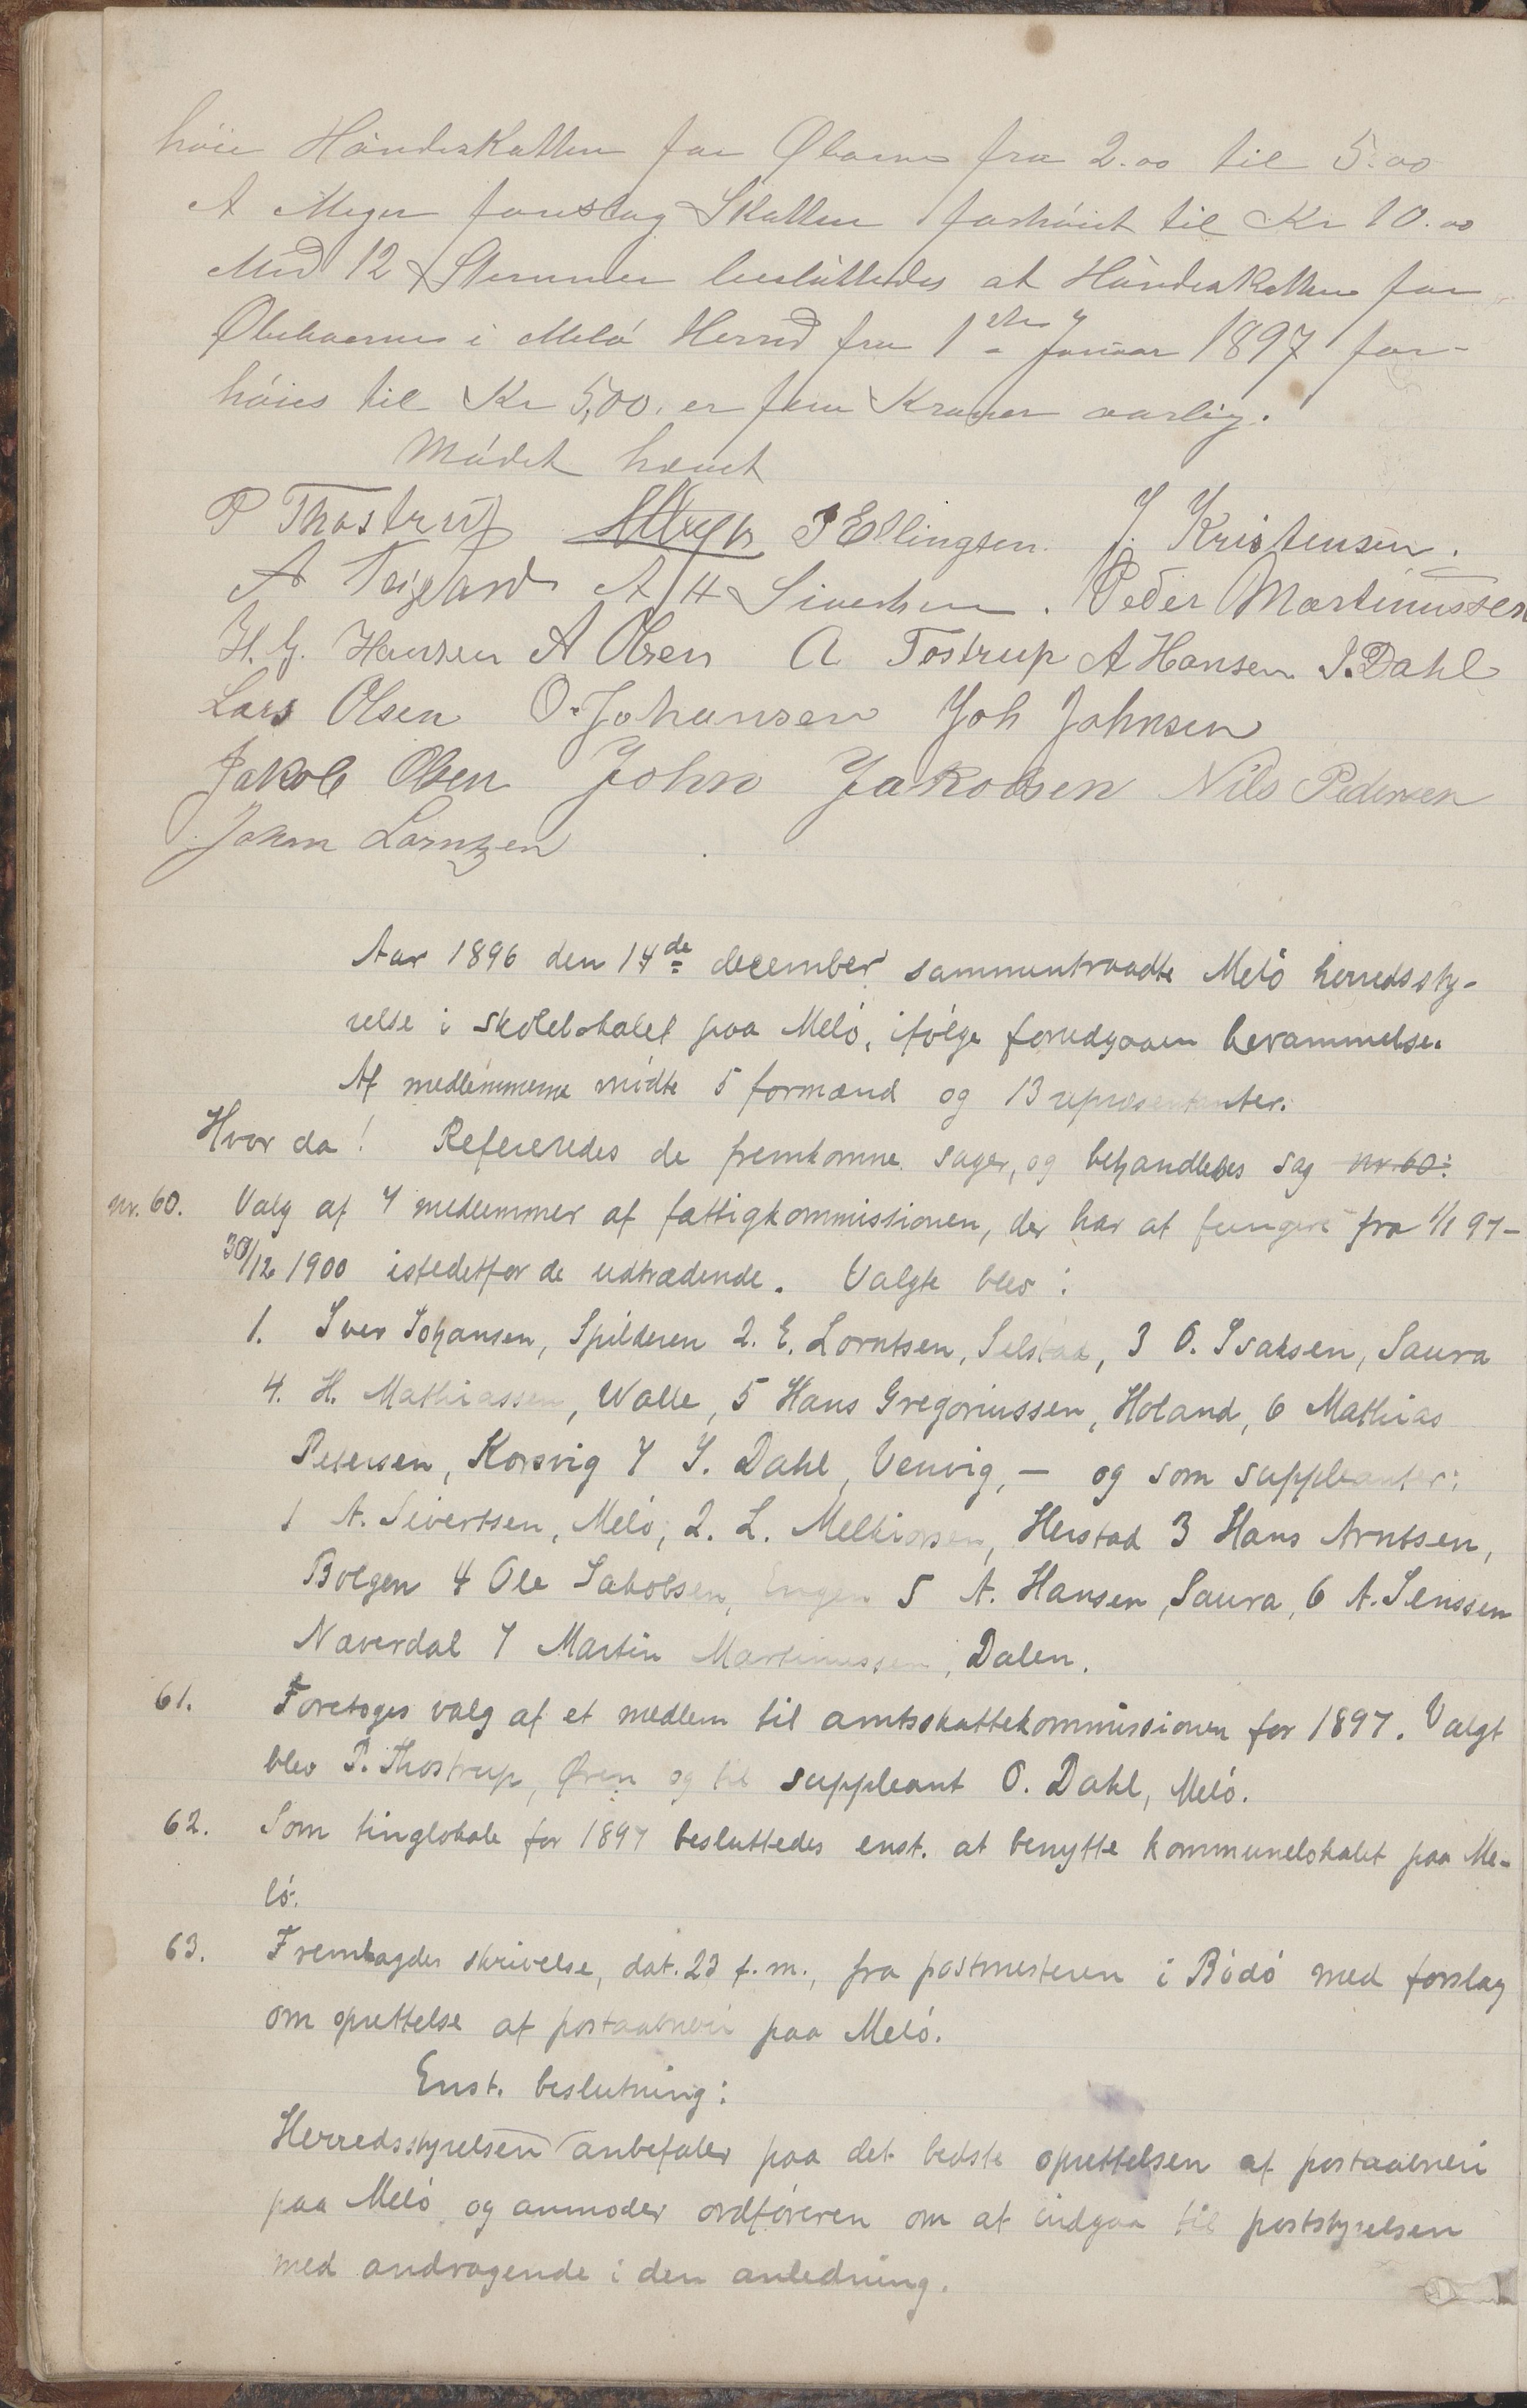 höie Hündeskatten for Øboerne fra 2.00 til 5.00
A Meyer foreslog Skatten forhöiet til Kr 10.00
Med 12 Stemmer beslüttedes at Hündeskatten for
Øbeboerne i Melö Herred fra 1ste Januar 1897 for-
höies til Kr 5,00. er fem Kroner aarlig.
Mödet hævet
P Thostrup AMeyer P Ellingsen. J. Kristensen.
A Teigland A H Sivertsen. Peder Martinussen
H. G. Hansen A Olsen A Tostrup A Hansen I. Dahl
Lars Olsen O. Johansen Joh Johnsen
Jakob Olsen John Jakobsen Nils Pedersen
Johan Lorntzen
Aar 1896 den 14de december sammentraadte Melö herredssty-
relse i skolelokalet paa Melö, ifölge forudgaaen berammelse.
Af medlemmerne mödte 5 formænd og 13 repræsentanter.
Hvor da! Refereredes de fremkomne sager, og behandledes sag nr. 60:
nr. 60. Valg af 7 medlemmer af fattigkommissionen, der har at fungere fra 1/1 97-
30/12 1900 istedetfor de udtrædende. Valgte blev:
1. Iver Johansen, Spilderen 2. E. Lorntsen, Selstad, 3 O. Isaksen, Saura
4. H. Mathiassen, Walle, 5 Hans Gregoriussen, Holand, 6 Mathias
Petersen, Korsvig 7 I. Dahl, Venvig, – og som suppleanter:
1 A. Sivertsen, Melö, 2. L. Melkiorsen, Herstad 3 Hans Arntsen,
Bolgen 4 Ole Jakobsen, Engen 5 A. Hansen, Saura, 6 A. Jenssen
Næverdal 7 Martin Martinussen, Dalen.
61. Foretoges valg af et medlem til amtsskattekommissionen for 1897. Valgt
blev P. Thostrup, Øren og til suppleant O. Dahl, Melö.
62. Som tinglokale for 1897 besluttedes enst. at benytte kommunelokalet paa Me-
lö.
63. Fremlagdes skrivelse, dat. 23 f. m., fra postmesteren i Bödö med forslag
om oprettelse af postaabneri paa Melö.
Enst. beslutning:
Herredsstyrelsen anbefaler paa det bedste oprettelsen af postaabneri
paa Melö og anmoder ordföreren om at indgaa til poststyrelsen
med andragende i den anledning.